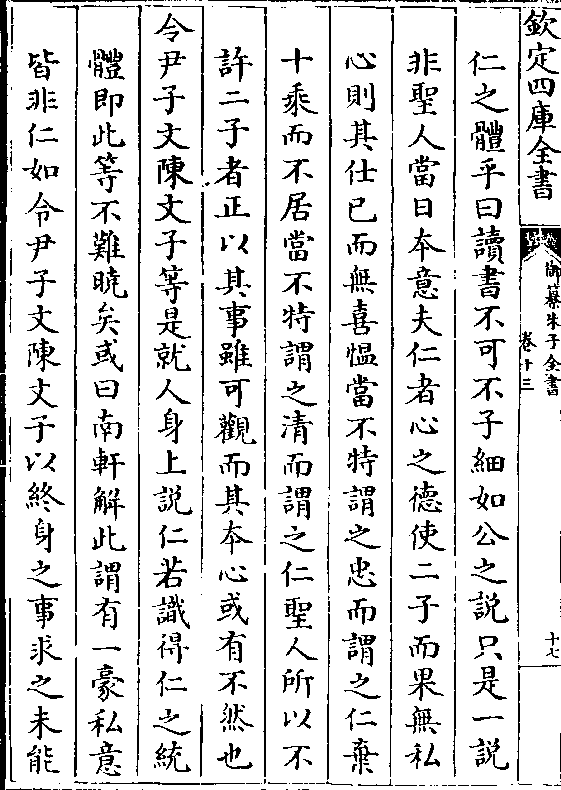 欽定四庫全書
御纂朱子全書
卷十三
十七
仁之體乎曰讀書不可不子細如公之説只是一説
非聖人當日本意夫仁者心之德使二子而果無私
心則其仕已而無喜愠當不特謂之忠而謂之仁棄
十乘而不居當不特謂之清而謂之仁聖人所以不
許二子者正以其事雖可觀而其本心或有不然也
令尹子文陳文子等是就人身上説仁若識得仁之統
體即此等不難曉矣或曰南軒解此謂有一豪私意
皆非仁如令尹子文陳文子以終身之事求之未能